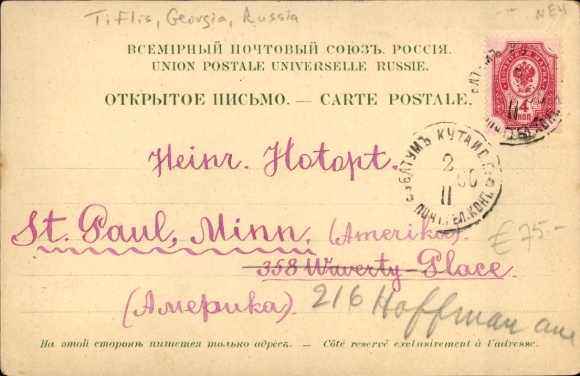 Tiflis, Georgia, Russia
NEH
ВСЕМІРНЫЙ ПОЧТОВЫЙ СОЮЗЪ. РОССІЯ.
UNION POSTALE UNIVERSELLE RUSSIE.
ОТКРЫТОЕ ПИСЬМО. — CARTE POSTALE.
4
КОП
БАТУМЪ КУТАИС. Г.
2
11
00
ПОЧТ. ТЕЛ. КОНТ.
Heinr. Hotopt.
St. Paul, Minn. (Amerika).
€75.-
358 Waverty-Place
(Америка).
216 Hoffman ave
На этой сторонѣ пишется только адресъ. — Côté reservé exclusivement à l'adresse.